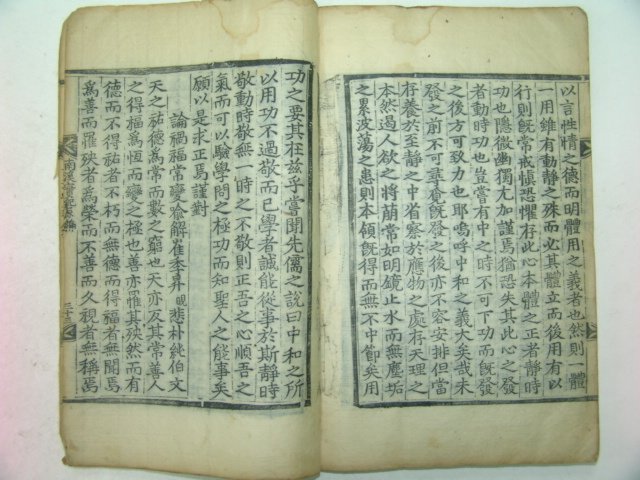 以言性情之德而明體用之義者也然則一體
一用雖有動靜之殊而必其體立而後用有以
行則旣常戒愼恐懼存此心本體之正者靜時
功也隱微幽獨尤加謹焉猶恐失其此心之發
者動時功也豈嘗有中之時不可下功而旣發
之後方可致力也耶嗚呼中和之義大矣哉未
發之前不可尋覓旣發之後亦不容安排但當
存養於至靜之中省察於應物之處存天理之
本然遏人欲之將萌常如明鏡止水而無塵垢
之累波蕩之患則本領旣得而無不中節矣用
功之要其在兹乎嘗聞先儒之說曰中和之所
以用功不過敬而已學者誠能從事於斯靜時
敬動時敬無一時之不敬則正吾之心順吾之
氣而可以驗學問之極功而知聖人之能事矣
願以是求正焉謹對
論禍福常變奉解崔季昇明悲朴純伯文
天之祐德爲常而數之窮也天亦反其常善人
之得福爲恆而變之極也善亦罹其殃然而有
德而不得祐者不朽而無德而得福者無聞焉
爲善而罹殃者爲榮而不善而久視者無稱焉